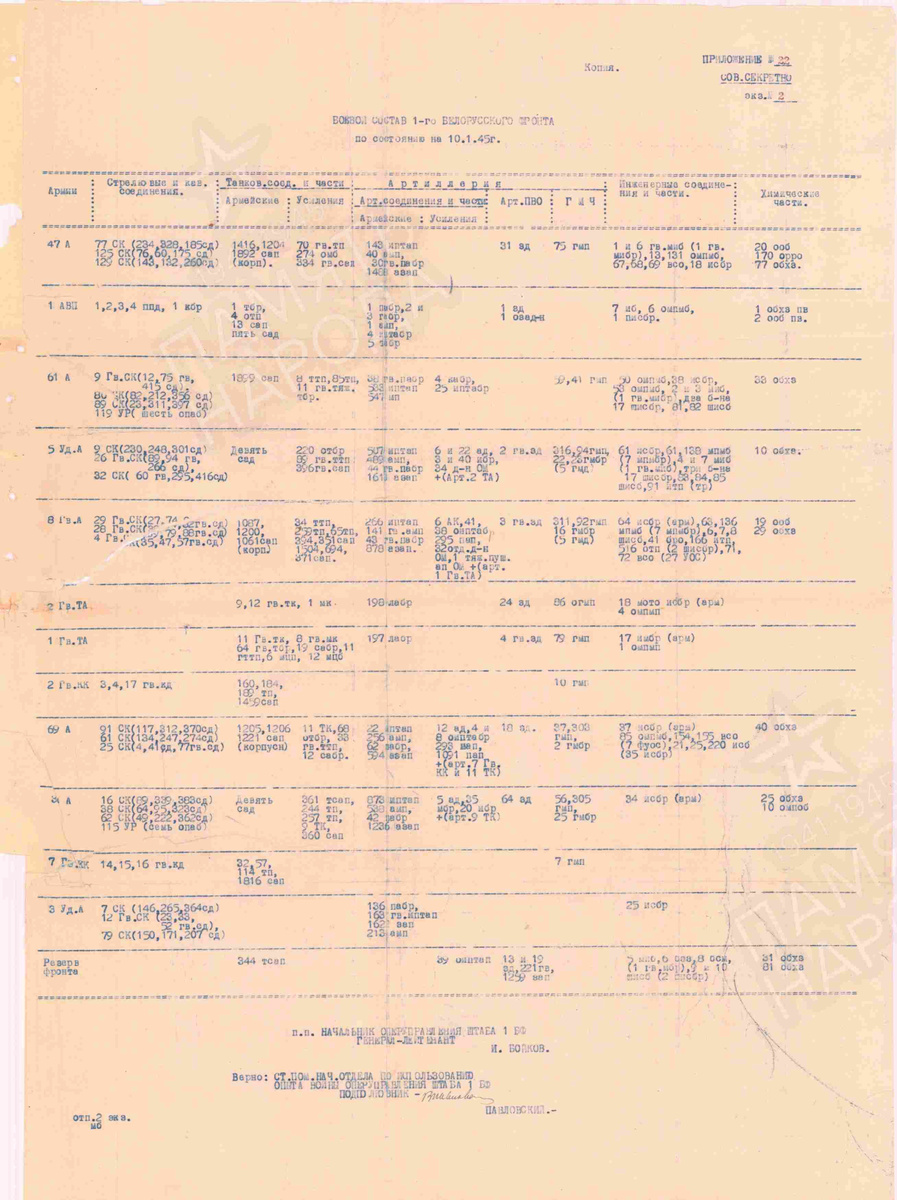 Копия.
ПРИЛОЖЕНИЕ № 22
СОВ.СЕКРЕТНО
экз.№ 2
БОЕВОЙ СОСТАВ 1-го БЕЛОРУССКОГО ФРОНТА
по состоянию на 10.1.45г.
Армии : Стрелковые и кав. соединения. : Танков.соед. и части : Артиллерия : Инженерные соедине-ния и части. : Химические части.
Армейские : Усиления : Арт.соединения и части : Арт.ПВО : Г М Ч
Армейские : Усиления
47 А 77 СК (234,328,185сд) 1416,1204 70 гв.тп 143 иптап 31 зд 75 гмп 1 и 6 гв.миб (1 гв. 20 ооб
125 СК(76,60,175 сд) 1892 сап 274 омб 40 амп, мибр),13,131 омпмб, 170 орро
129 СК(143,132,260сд) (корп). 334 гв.сап 30гв.пабр 67,68,69 всо,18 исбр 77 обхз.
1488 азап
1 АВП 1,2,3,4 ппд, 1 кбр 1 тбр, 1 пабр,2 и 1 зд 7 иб, 6 омпмб, 1 обхз пв
4 отп 3 габр, 1 озад-н 1 писбр. 2 ооб пв.
13 сап 1 амп,
пять сад 4 иптабр
5
61 А 9 Гв.СК(12,75 гв, 1899 сап 8 ттп,85тп, 38 гв.пабр 4 имбр, 59,41 гмп 50 омпмб,38 исбр, 33 обхз
415 сд), 11 гв.тяж. 533 иптап 25 иптабр 53 омпмб, 2 и 3 миб,
80 СК(82,212,356 сд) тбр. 547 мп (1 гв.мибр),два б-на
89 СК(23,311,397 сд) 17 шисбр, 81,82 шисб
119 УР( шесть опаб)
5 Уд.А 9 СК(230,248,301сд) Девять 220 отбр 507 иптап 6 и 22 ад, 2 гв.зд 316,94гмп, 61 исбр,61,138 мпмб 10 обхз.
26 Гв.СК(89,94 гв, сад 89 гв.ттп 489 амп, 3 и 40 ибр, 22,23гмбр (7 мпмбр),4 и 7 миб
266 сд), 396гв.сап 44 гв.пабр 34 д-н ОМ (5 гмд) (1 гв.миб),три б-на
32 СК( 60 гв,295,416сд) 1617 азап +(Арт.2 ТА) 17 шисбр,83,84,85
шисб,91 итп (тр)
8 Гв.А 29 Гв.СК(27,74 1087, 34 ттп, 266 иптап 6 АК,41, 3 гв.зд 311,92гмп 64 исбр (арм),63,136 19 ооб
28 Гв.СК 1200, 259тп,65тп, 141 гв.амп 38 оиптаб 16 гмбр мпмб (7 мпмбр),6,7,8 29 обхз
4 Гв 1061сап 394,351сап 43 гв.пабр 295 пап, (5 гмд) шисб,41 бро,166 итп,
(35,47,57гв.сд) (корп) 1504,694, 878 азап. 32отд.д-н 516 отп (2 шисбр),71,
371сап. ОМ,1 тяж.пуш. 72 всо (27 УОС)
ап ОМ +(арт.
1 Гв.ТА)
2 Гв.ТА 9,12 гв.тк, 1 мк 198 лабр 24 зд 86 огмп 18 мото исбр (арм)
4 омпмп
1 Гв.ТА 11 Гв.тк, 8 гв.мк 197 лабр 4 гв.зд 79 гмп 17 имбр (арм)
64 гв.тбр,19 сабр,11 1 омпмп
гттп,6 мцп, 12 мцб
2 Гв.КК 3,4,17 гв.кд 160,184, 10 гмп
189 тп,
1459сап
69 А 91 СК(117,312,370сд) 1205,1206 11 ТК,68 22 иптап 12 ад,4 и 18 зд. 37,303 37 исбр (арм) 40 обхз
61 СК(134,247,274сд) 1221 сап отбр, 33 256 амп, 8 оиптабр гмп, 85 омпмб,154,155 всо
25 СК(4,41сд,77гв.сд) (корпусн) гв.ттп, 62 пабр, 293 мап, 2 гмбр (7 фуос),21,25,220 исб
12 сабр. 594 азап 1091 пап (35 исбр)
+(арт.7 Гв.
КК и 11 ТК)
А 16 СК(89,339,383сд) Девять 361 тсап, 873 иптап 5 ад,35 64 зд 56,305 34 исбр (арм) 25 обхз
38 СК(64,95,323сд) сад 244 тп, 538 амп, мбр,20 ибр гмп, 10 омпоб
62 СК(49,222,362сд) 257 тп, 42 пабр +(арт.9 ТК) 25 гмбр
115 УР (семь опаб) 9 ТК, 1236 азап
360 сап
7 Гв.КК 14,15,16 гв.кд 32,57, 7 гмп
114 тп,
1816 сап
3 Уд.А 7 СК (146,265,364сд) 136 пабр, 25 исбр
12 Гв.СК (23,33, 163 гв.иптап
52 гв.сд), 1622 зап
79 СК(150,171,207 сд) 213 амп
Резерв фронта 344 тсап 39 оиптап 13 и 19 5 миб,6 осб,8 осм, 31 обхз
зд,221гв, (1 гв.ибр),9 и 10 81 обхз
1259 зап шисб (2 шисбр)
п.п. НАЧАЛЬНИК ОПЕРУПРАВЛЕНИЯ ШТАБА 1 БФ
ГЕНЕРАЛ-ЛЕЙТЕНАНТ
И. БОЙКОВ.
Верно: СТ.ПОМ.НАЧ.ОТДЕЛА ПО ИСПОЛЬЗОВАНИЮ
ОПЫТА ВОЙНЫ ОПЕРУПРАВЛЕНИЯ ШТАБА 1 БФ
ПОДПОЛКОВНИК -
ПАВЛОВСКИЙ.-
отп.2 экз.
мб
ПАМЯТЬ НАРОДА